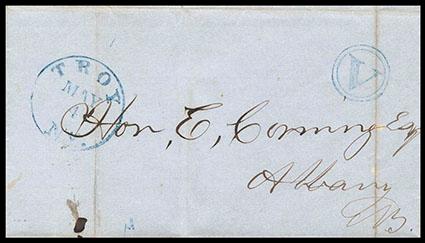 TROY
MAY
N.Y.
V
Hon, E, Corning Esq
Albany